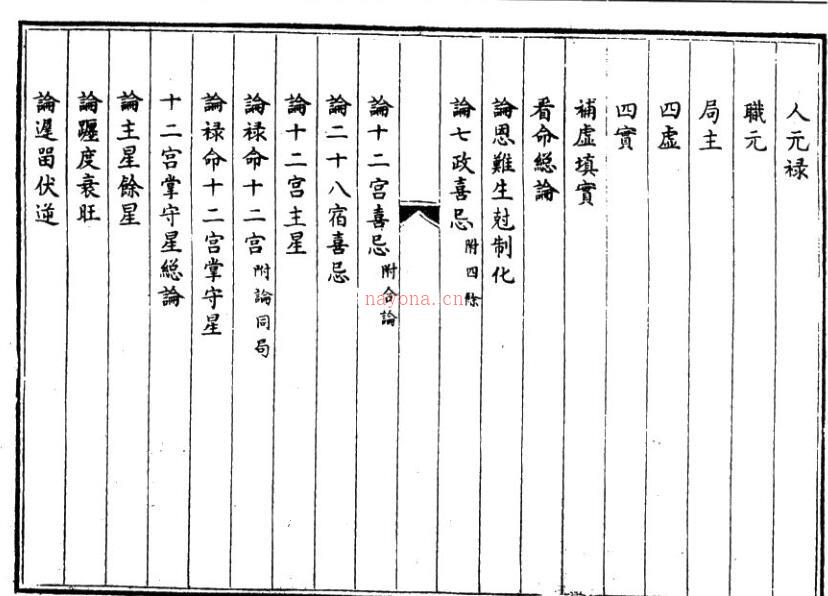 人元禄
職元
局主
四虚
四實
補虚填實
看命総論
論恩難生尅制化
論七政喜忌 附四餘
論十二宫喜忌 附合論
論二十八宿喜忌
論十二宫主星
論禄命十二宫 附論同局
論禄命十二宫掌守星
十二宫掌守星総論
論主星餘星
論躔度衰旺
論遲留伏逆
nayona.cn